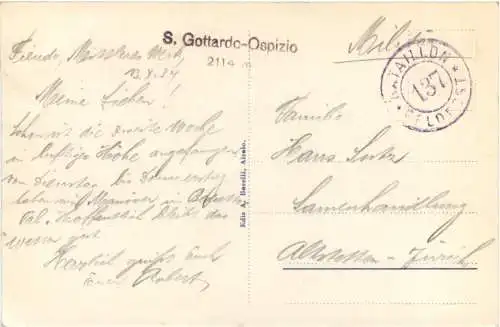 S. Gottardo-Ospizio
2114 m
Militär
BATAILLON
137
FELDPOST
13.X.39
Meine Lieben!
Schon ist die zweite Woche
in luftiger Höhe angefangen
von Dienstag bis Donnerstag
haben wir Manöver, in
Tal. Hoffentlich bleibt das
Wetter gut.
Herzlich grüsst Euch
Euer Robert
Edit. A. Borelli, Airolo.
Familie
Hans Lutz
Samenhandlung
Altstetten-Zürich